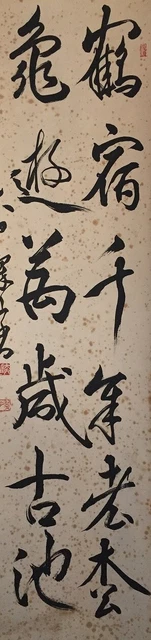 鶴宿千年老枩
龜遊萬歲古池